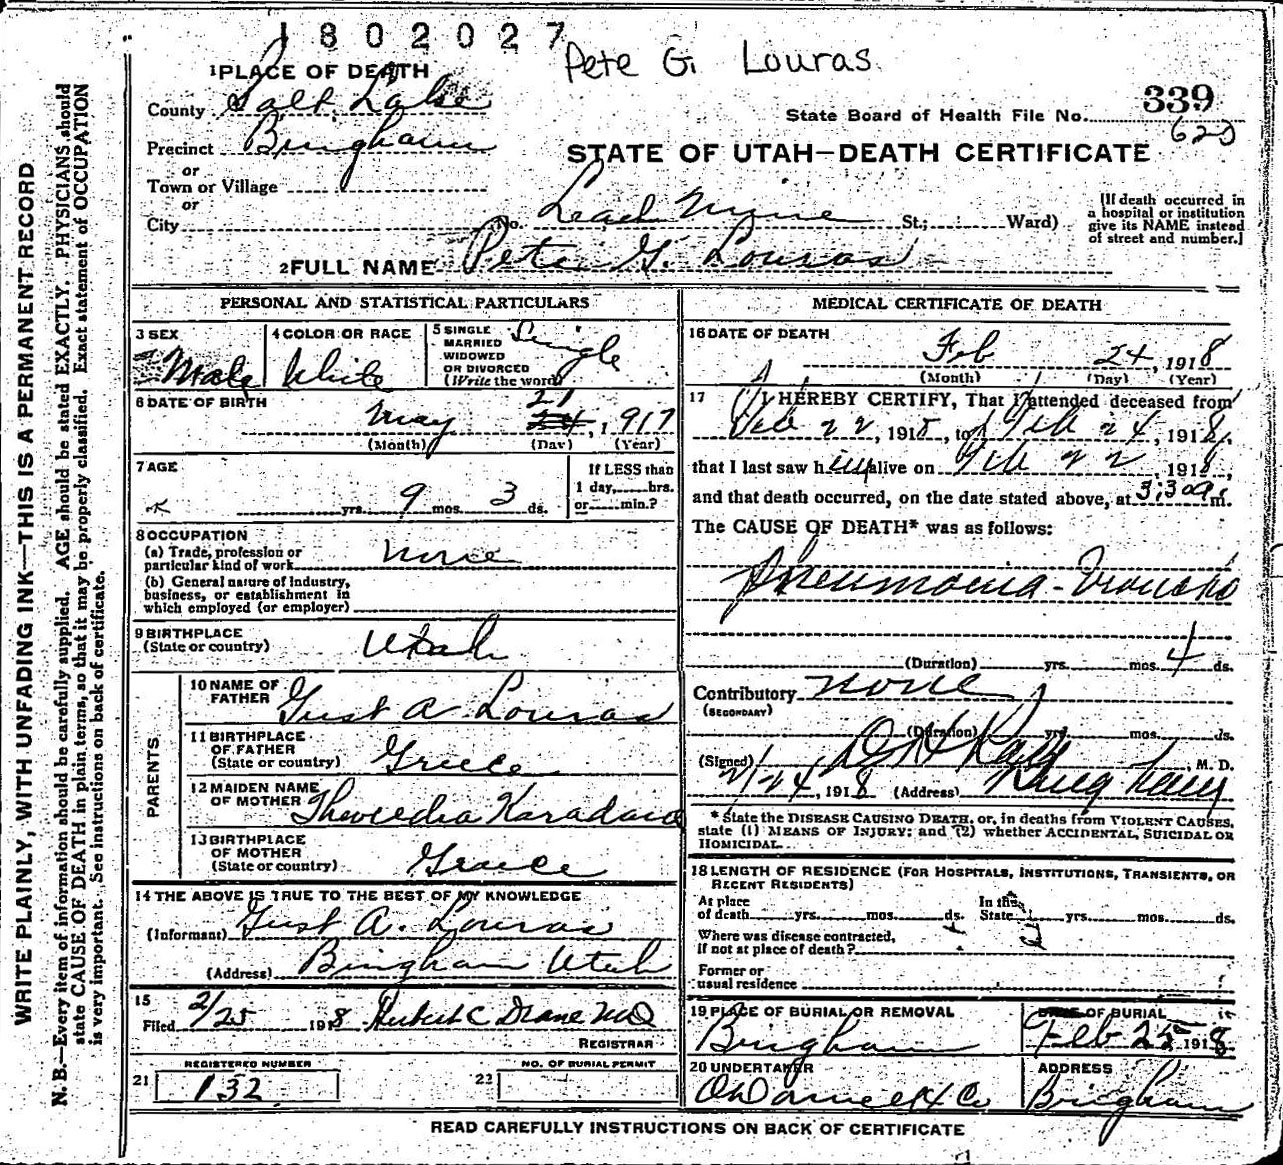 1802027
Pete G. Louras
1 PLACE OF DEATH
County Salt Lake
State Board of Health File No. 339
620
Precinct Bingham
STATE OF UTAH—DEATH CERTIFICATE
or
Town or Village
or
City No. Lead Mine St.; Ward)
[If death occurred in
a hospital or institution
give its NAME instead
of street and number.]
2 FULL NAME Peter G. Louras
PERSONAL AND STATISTICAL PARTICULARS
3 SEX
Male
4 COLOR OR RACE
White
5 SINGLE
MARRIED
WIDOWED
OR DIVORCED
(Write the word)
Single
6 DATE OF BIRTH
May 21, 1917
(Month) (Day) (Year)
7 AGE
yrs. 9 mos. 3 ds.
If LESS than
1 day, hrs.
or min.?
8 OCCUPATION
(a) Trade, profession or
particular kind of work none
(b) General nature of Industry,
business, or establishment in
which employed (or employer)
9 BIRTHPLACE
(State or country) Utah
PARENTS
10 NAME OF
FATHER Gust A Louras
11 BIRTHPLACE
OF FATHER
(State or country) Greece
12 MAIDEN NAME
OF MOTHER
13 BIRTHPLACE
OF MOTHER
(State or country) Greece
14 THE ABOVE IS TRUE TO THE BEST OF MY KNOWLEDGE
(Informant) Gust A. Louras
(Address) Bingham Utah
15
Filed 2/25 1918 Hubert C Deane MD
REGISTRAR
REGISTERED NUMBER
21 132
NO. OF BURIAL PERMIT
22
MEDICAL CERTIFICATE OF DEATH
16 DATE OF DEATH
Feb 24, 1918
(Month) (Day) (Year)
17 I HEREBY CERTIFY, That I attended deceased from
Feb 22, 1918, to Feb 24, 1918,
that I last saw him alive on Feb 22, 1918,
and that death occurred, on the date stated above, at 3:30 a m.
The CAUSE OF DEATH* was as follows:
Pneumonia - Broncho
(Duration) yrs. mos. 4 ds.
Contributory none
(SECONDARY)
(Duration) yrs. mos. ds.
(Signed) , M. D.
2/24, 1918 (Address)
* State the DISEASE CAUSING DEATH, or, in deaths from VIOLENT CAUSES,
state (1) MEANS OF INJURY; and (2) whether ACCIDENTAL, SUICIDAL OR
HOMICIDAL.
18 LENGTH OF RESIDENCE (FOR HOSPITALS, INSTITUTIONS, TRANSIENTS, OR
RECENT RESIDENTS)
At place
of death yrs. mos. ds.
In the
State yrs. mos. ds.
Where was disease contracted,
If not at place of death?
Former or
usual residence
19 PLACE OF BURIAL OR REMOVAL
Bingham
DATE OF BURIAL
Feb 25 1918
20 UNDERTAKER
O'Donnell & Co
ADDRESS
Bingham
READ CAREFULLY INSTRUCTIONS ON BACK OF CERTIFICATE
WRITE PLAINLY, WITH UNFADING INK—THIS IS A PERMANENT RECORD
N. B.—Every item of information should be carefully supplied. AGE should be stated EXACTLY. PHYSICIANS should
state CAUSE OF DEATH in plain terms, so that it may be properly classified. Exact statement of OCCUPATION
is very important. See instructions on back of certificate.